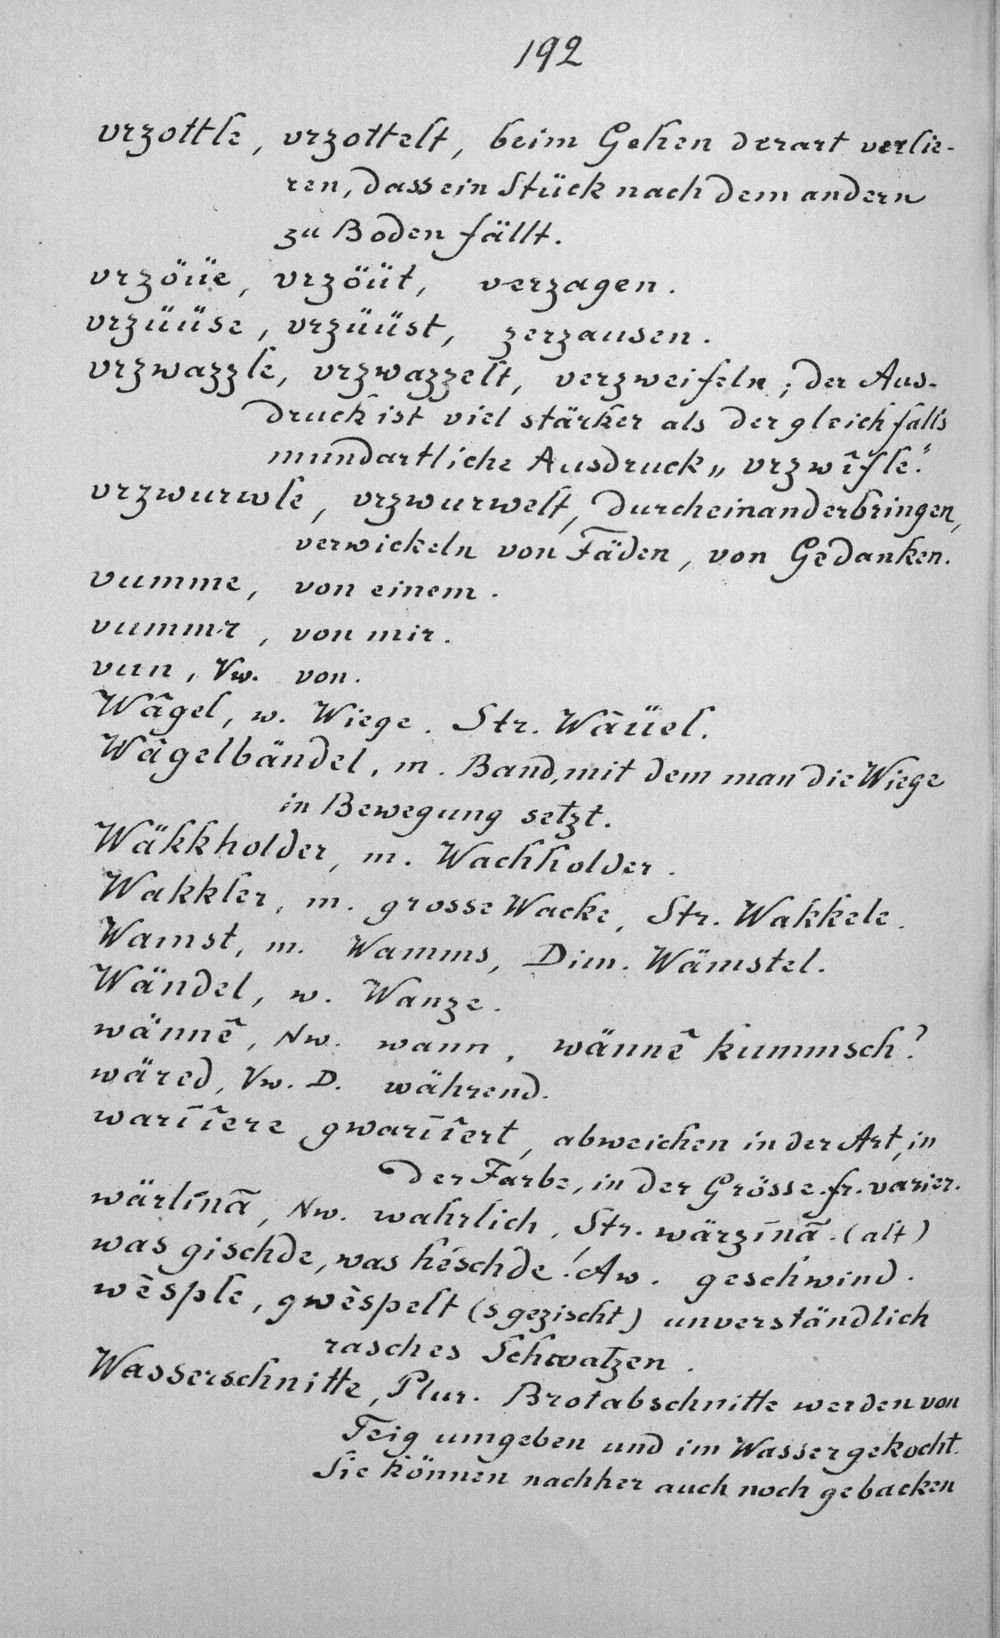 192
vrzottle, vrzottelt, beim Gehen derart verlie-
ren, dass ein Stück nach dem andern
zu Boden fällt.
vrzöüe, vrzöüt, verzagen.
vrzüüse, vrzüüst, zerzausen.
vrzwazzle, vrzwazzelt, verzweifeln; der Aus-
druck ist viel stärker als der gleichfalls
mundartliche Ausdruck „vrzwîfle."
vrzwurwle, vrzwurwelt, durcheinanderbringen,
verwickeln von Fäden, von Gedanken.
vumme, von einem.
vummr, von mir.
vun, Vw. von.
Wâgel, w. Wiege. Str. Wâüel.
Wâgelbändel, m. Band, mit dem man die Wiege
in Bewegung setzt.
Wäkkholder, m. Wachholder.
Wakkler, m. grosse Wacke, Str. Wakkele.
Wamst, m. Wamms, Dim. Wämstel.
Wändel, w. Wanze.
wännê, Nw. wann, wännê kummsch?
wäred, Vw. D. während.
warīîere gwarīîert, abweichen in der Art, in
der Farbe, in der Grösse. fr. varier.
wärlīnā, Nw. wahrlich, Str. wärzīnā. (alt)
was gischde, was héschde! Aw. geschwind.
wèsple, gwèspelt (s gezischt) unverständlich
rasches Schwatzen.
Wasserschnitte, Plur. Brotabschnitte werden von
Teig umgeben und im Wasser gekocht.
Sie können nachher auch noch gebacken